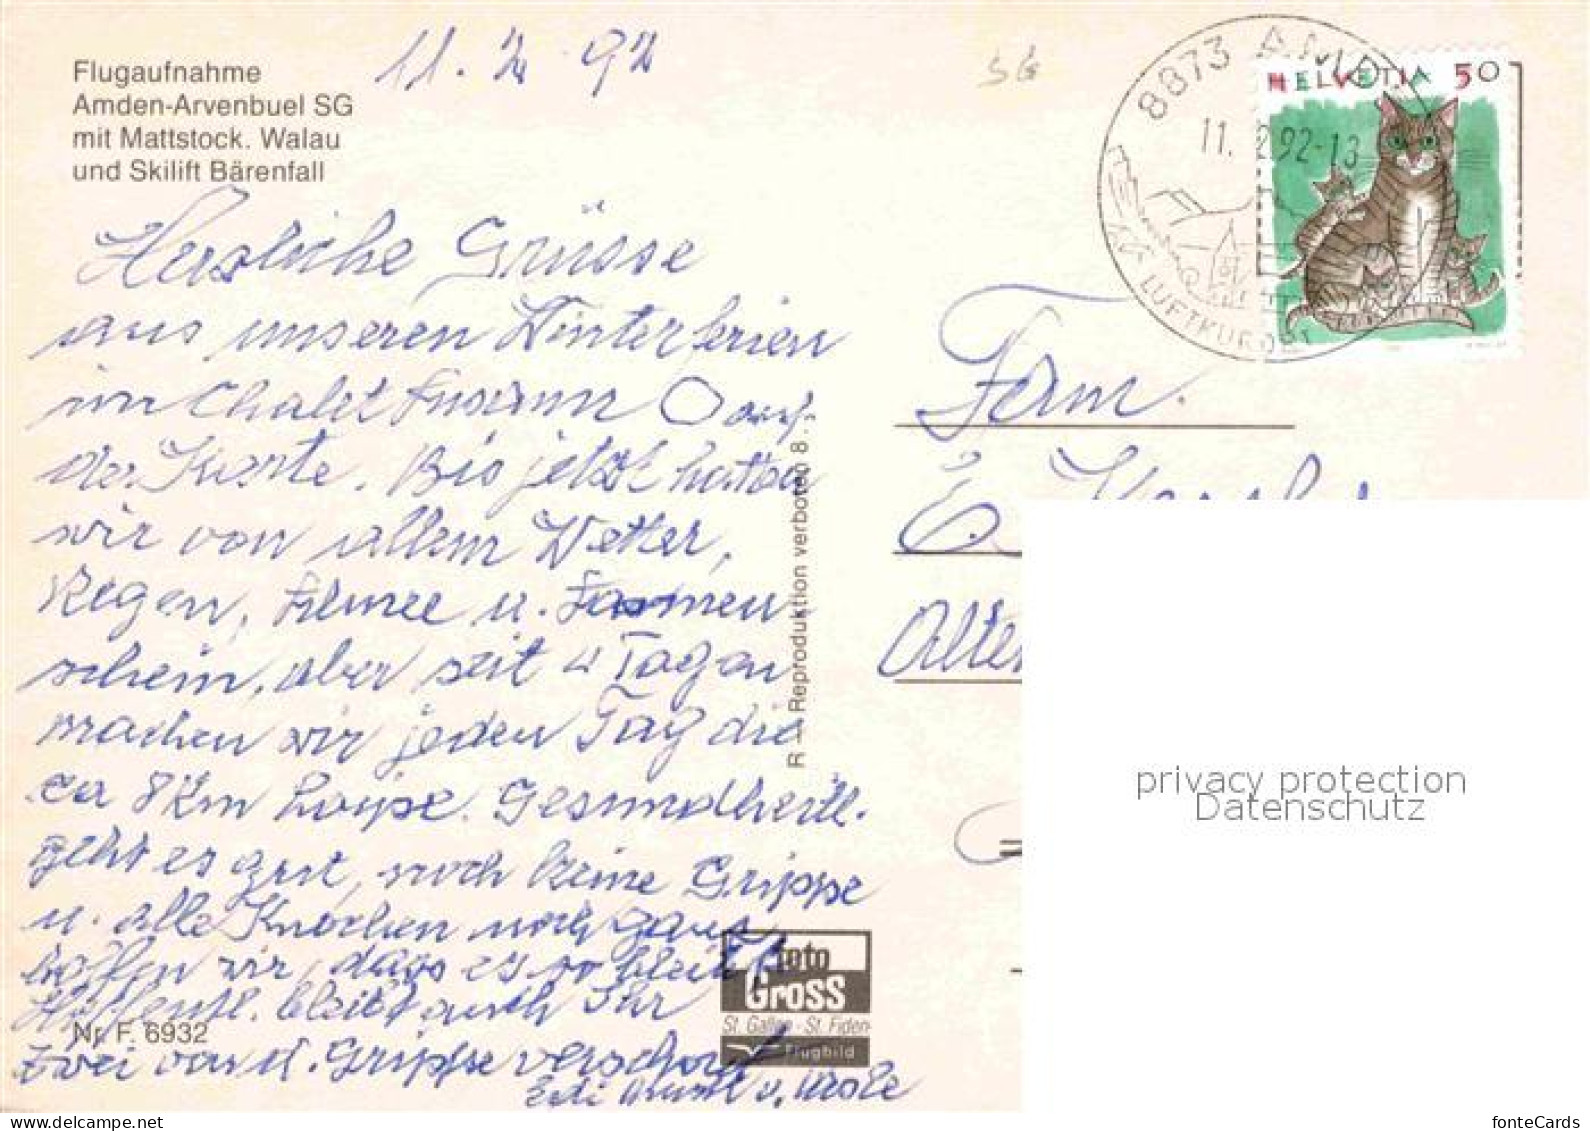 Flugaufnahme
Amden-Arvenbuel SG
mit Mattstock. Walau
und Skilift Bärenfall
11. 2. 92
SG
8873 AMD
11. 2.92-13
LUFTKURORT
HELVETIA 50
Herzliche Grüsse
aus unseren Winterferien
im Chalet auf
der Karte. Bis jetzt hatten
wir von allem Wetter,
Regen, u.
schein, aber seit 4 Tagen
machen wir jeden Tag die
ca 8 Km Loipe. Gesundheitl.
geht es gut, noch keine Grippe
u. alle Knochen noch ganz
hoffen wir, dass es so bleibt
Hoffentl. bleibt auch Ihr
zwei von d. Grippe verschont
Edi u.
Fam.
E.
R — Reproduktion verboten 8.
foto
Gross
St. Gallen - St. Fiden
Flugbild
Nr. F. 6932
privacy protection
Datenschutz
fonteCards
delcampe.net